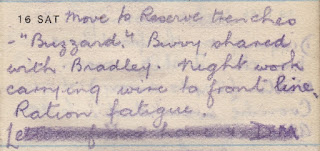 16 SAT Move to Reserve trenches
- "Buzzard." Bivvy, shared
with Bradley. Night work
carrying wire to front line.
Ration fatigue.
Letter from home & DM